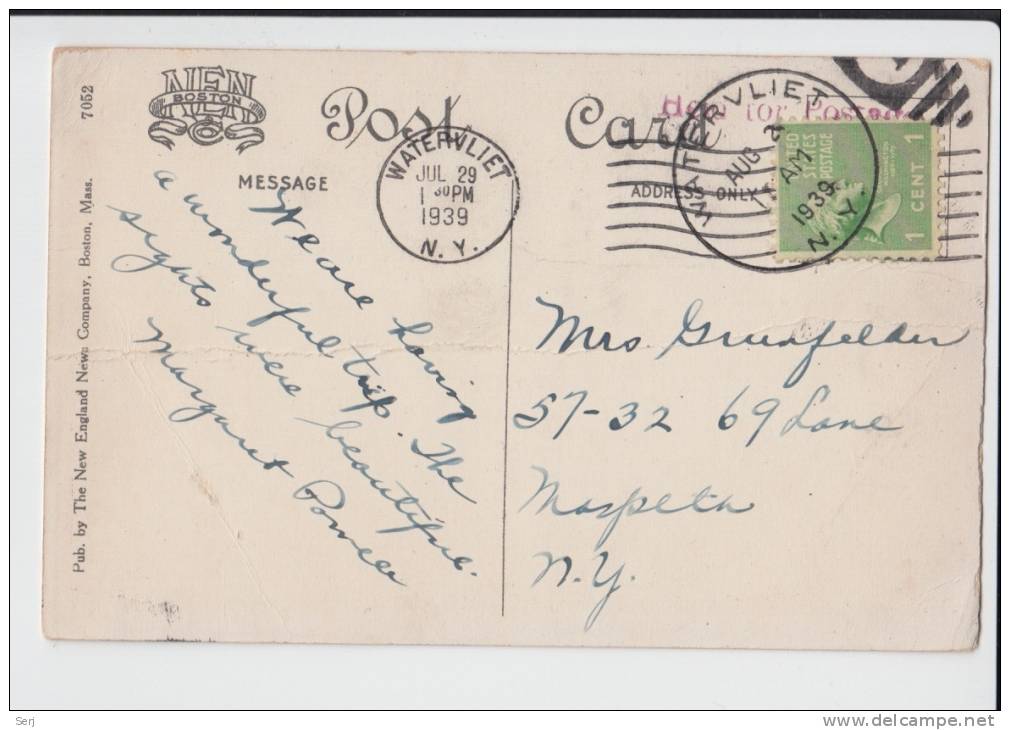 7052
Pub. by The New England News Company, Boston, Mass.
NEN
BOSTON
Post Card
Held for Postage
MESSAGE
ADDRESS ONLY
WATERVLIET
JUL 29
1 30 PM
1939
N. Y.
WATERVLIET
AUG 2
AM
1939
N. Y.
UNITED
STATES
POSTAGE
1 CENT 1
We are having
a wonderful trip. The
sights were beautiful.
Margaret Power
Mrs Grunfelder
57-32 69 Lane
Maspeth
N.Y.
Serj
www.delcampe.net